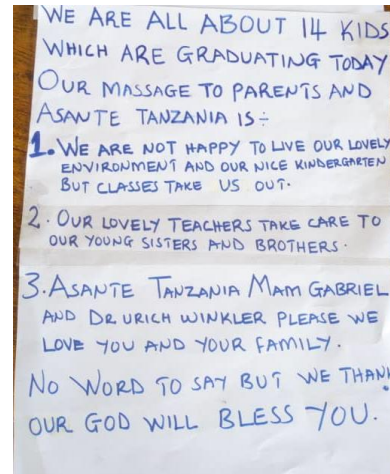 WE ARE ALL ABOUT 14 KIDS
WHICH ARE GRADUATING TODAY
OUR MASSAGE TO PARENTS AND
ASANTE TANZANIA IS ÷
1. WE ARE NOT HAPPY TO LIVE OUR LOVELY
ENVIRONMENT AND OUR NICE KINDERGARTEN
BUT CLASSES TAKE US OUT.
2. OUR LOVELY TEACHERS TAKE CARE TO
OUR YOUNG SISTERS AND BROTHERS.
3. ASANTE TANZANIA MAM GABRIEL
AND DR URICH WINKLER PLEASE WE
LOVE YOU AND YOUR FAMILY.
NO WORD TO SAY BUT WE THANK
OUR GOD WILL BLESS YOU.